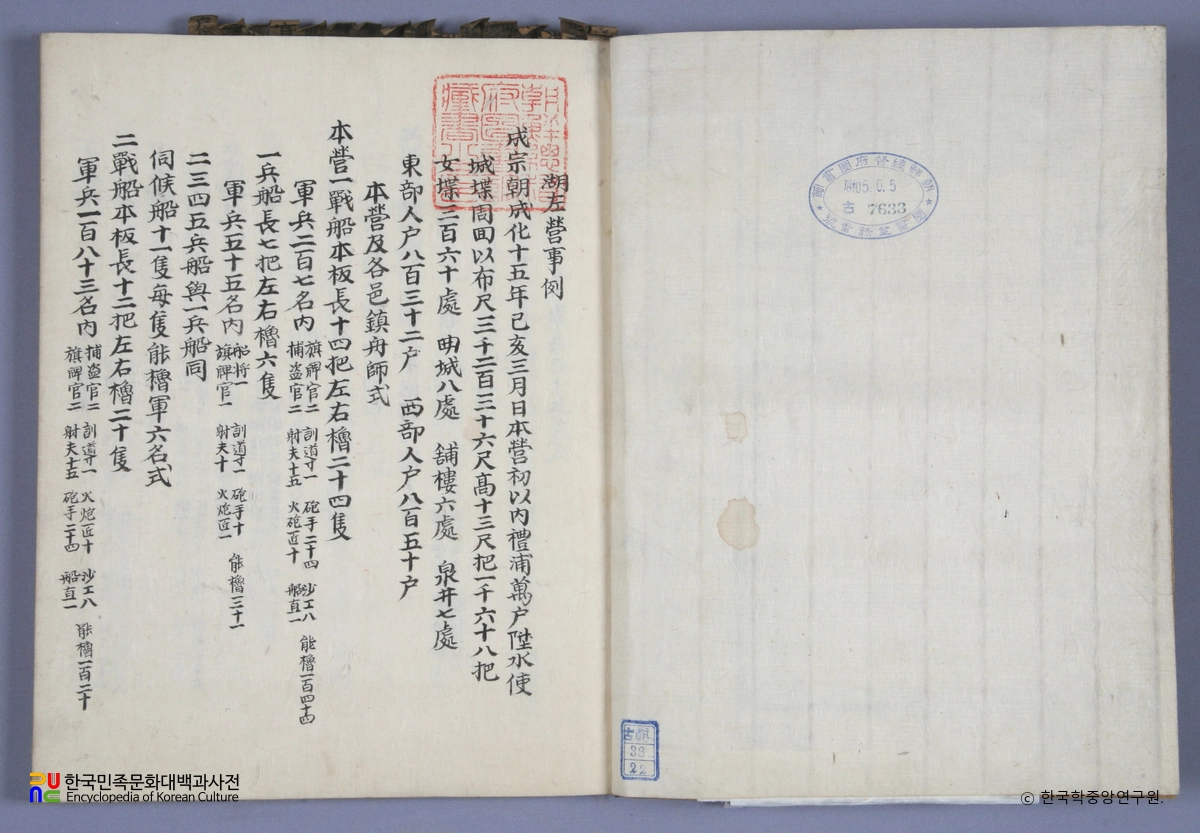 湖左營事例
成宗朝成化十五年己亥三月日本營初以內禮浦萬戶陞水使
城堞周回以布尺三千二百三十六尺高十三尺把一千六十八把
女堞三百六十處 曲城八處 舖樓六處 泉井七處
東部人户八百三十二户 西部人户八百五十户
本營及各邑鎮舟師式
本營一戰船本板長十四把左右櫓二十四隻
軍兵二百七名內 旗牌官二 捕盜官二 訓道寸一 射夫十五 砲手二十四 火砲匠十 沙工八 船直一 能櫓一百四十四
一兵船長七把左右櫓六隻
軍兵五十五名內 船将一 旗牌官一 訓道寸一 射夫十 砲手十 火炮匠一 能櫓三十一
二三四五兵船與一兵船同
伺候船十一隻每隻能櫓軍六名式
二戰船本板長十二把左右櫓二十隻
軍兵一百八十三名內 捕盜官二 旗牌官二 訓道寸一 射夫十五 火炮匠十 砲手二十四 沙工八 船直一 能櫓一百二十
朝鮮總督府圖書館
昭和5.6.5
古 7633
古朝
39
22
한국민족문화대백과사전
Encyclopedia of Korean Culture
© 한국학중앙연구원.